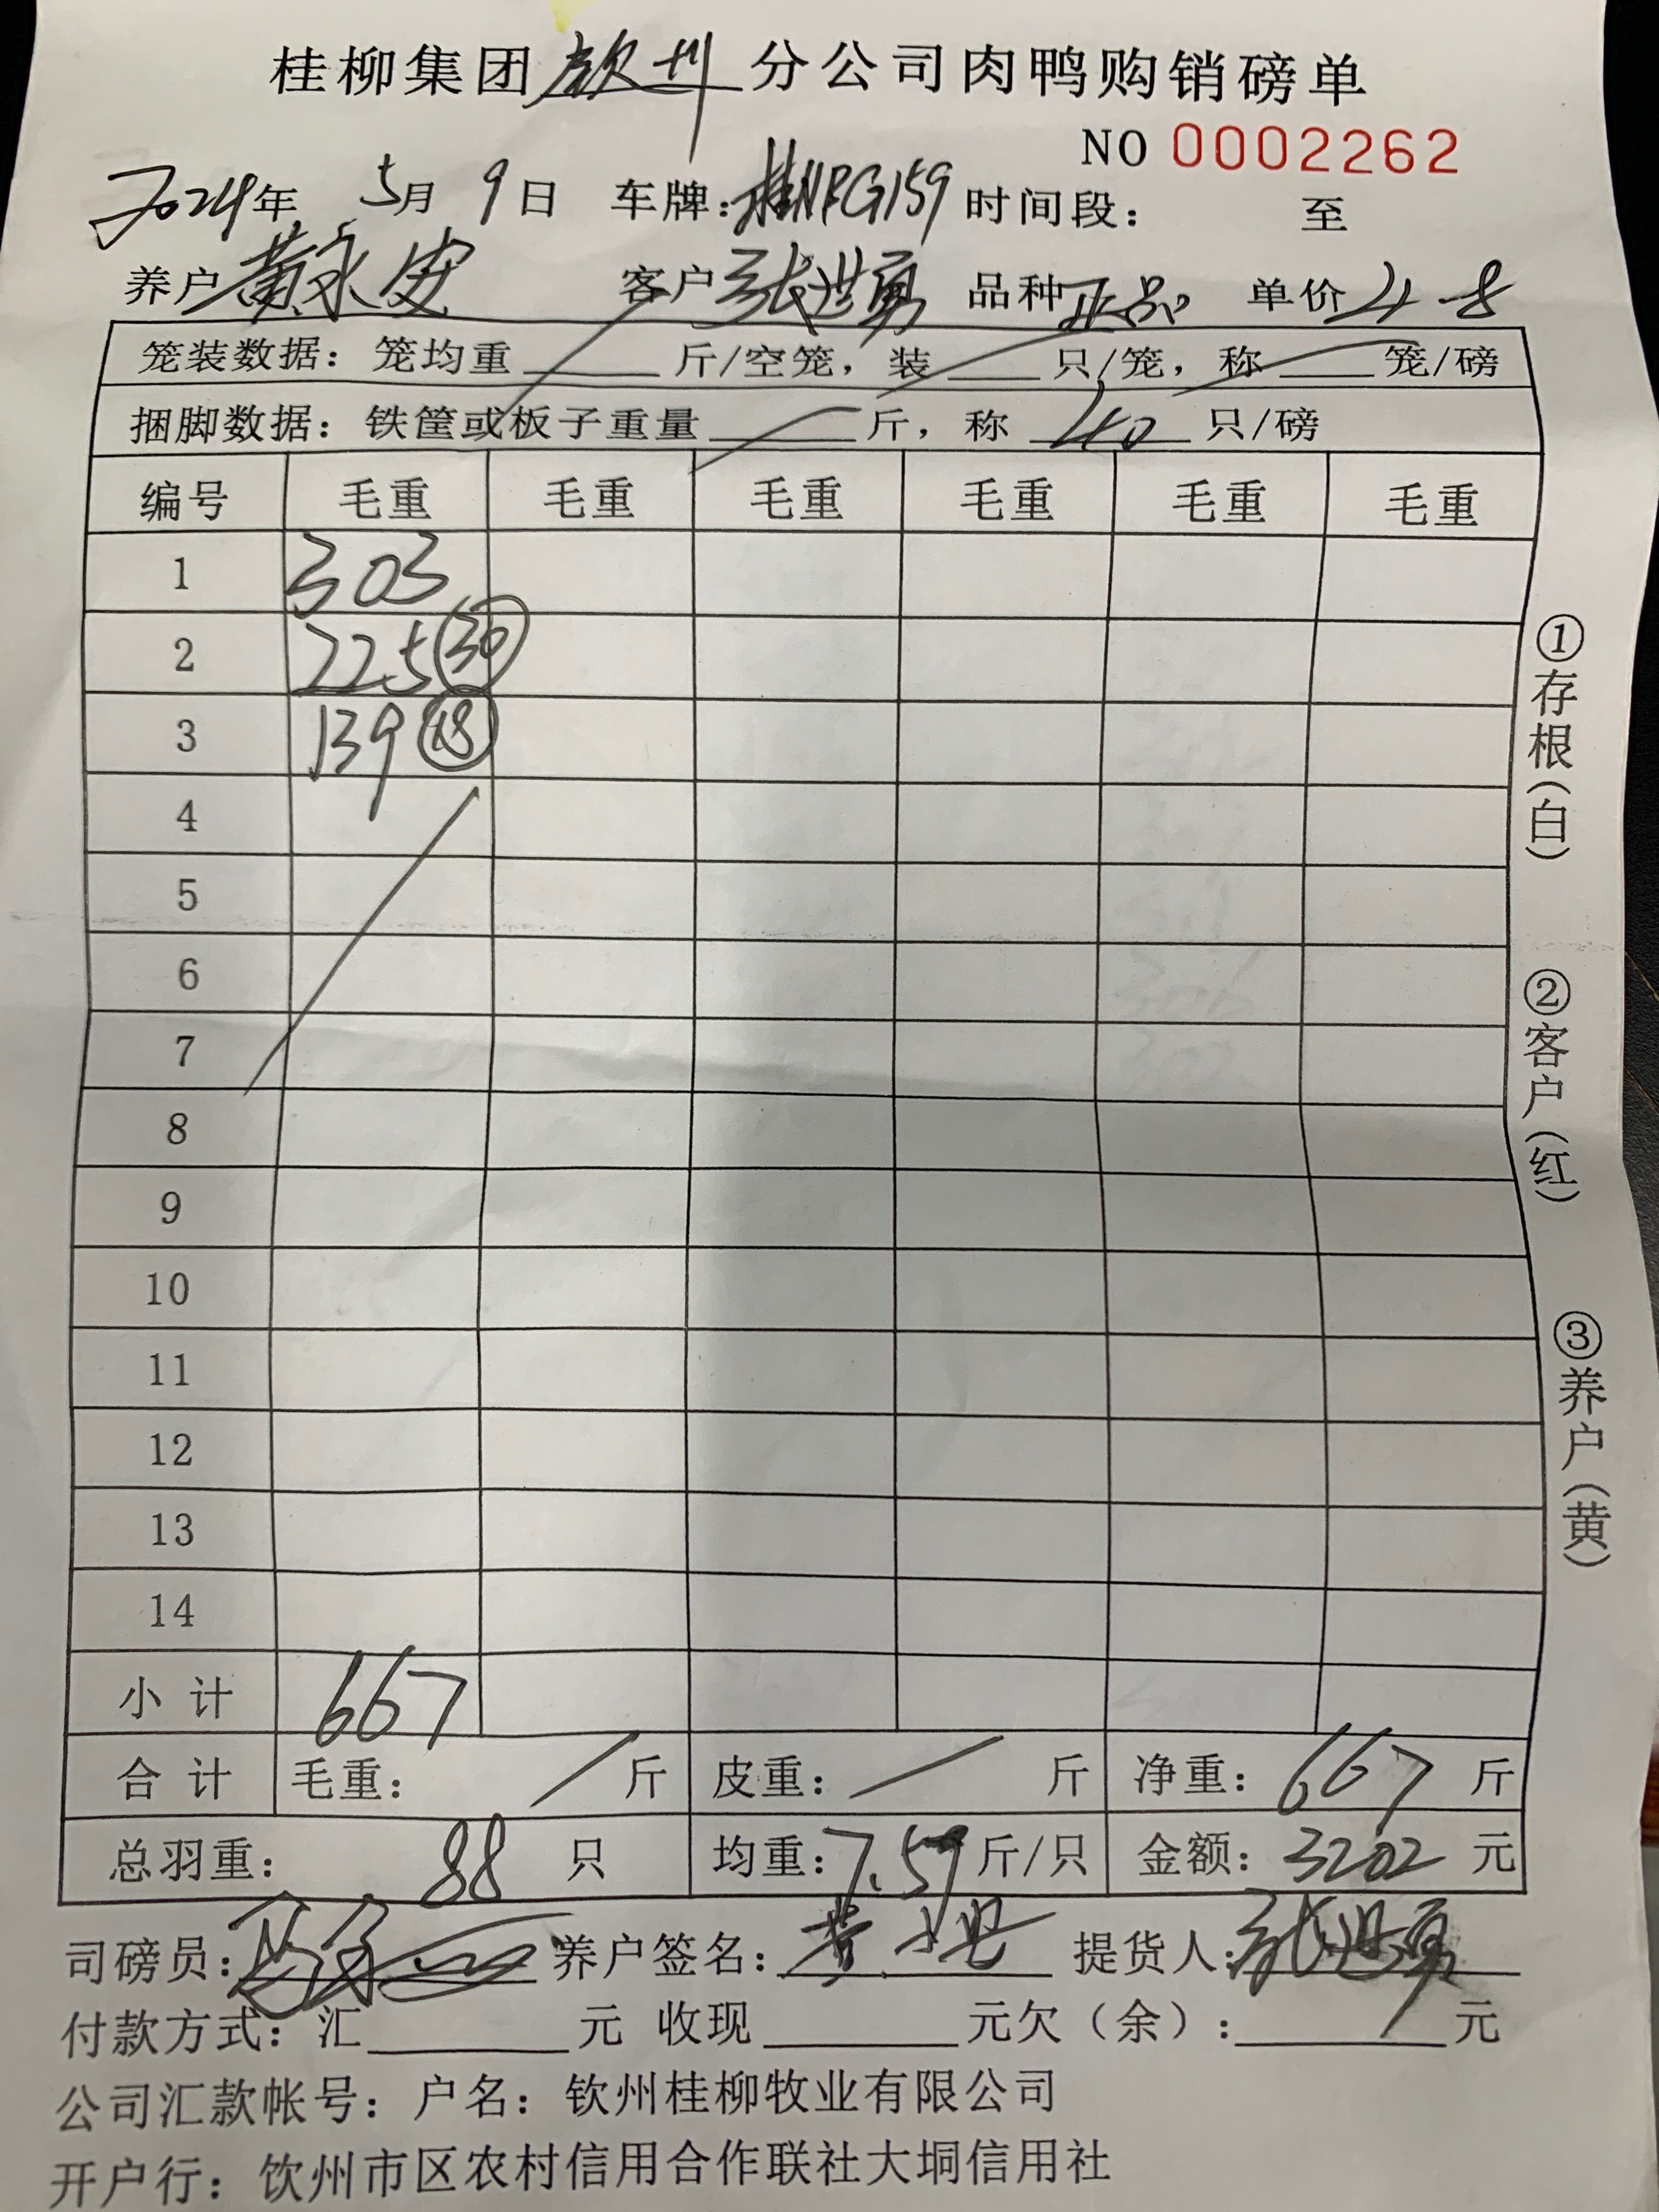 桂柳集团钦州分公司肉鸭购销磅单
NO 0002262
2024年 5月 9日 车牌：桂NFG159 时间段： 至
养户黄永安 客户张世勇 品种正品 单价4.8
笼装数据：笼均重____斤/空笼，装___只/笼，称___笼/磅
捆脚数据：铁筐或板子重量____斤，称 40 只/磅
编号 毛重 毛重 毛重 毛重 毛重 毛重
1 303
2 225 30
3 139 18
4
5
6
7
8
9
10
11
12
13
14
小计 667
合计 毛重： / 斤 皮重： / 斤 净重：667 斤
总羽重： 88 只 均重：7.59斤/只 金额：3202 元
司磅员： 养户签名： 提货人：张世勇
付款方式：汇____元 收现____元欠（余）：____元
公司汇款帐号：户名：钦州桂柳牧业有限公司
开户行：饮州市区农村信用合作联社大垌信用社
①存根（白）
②客户（红）
③养户（黄）